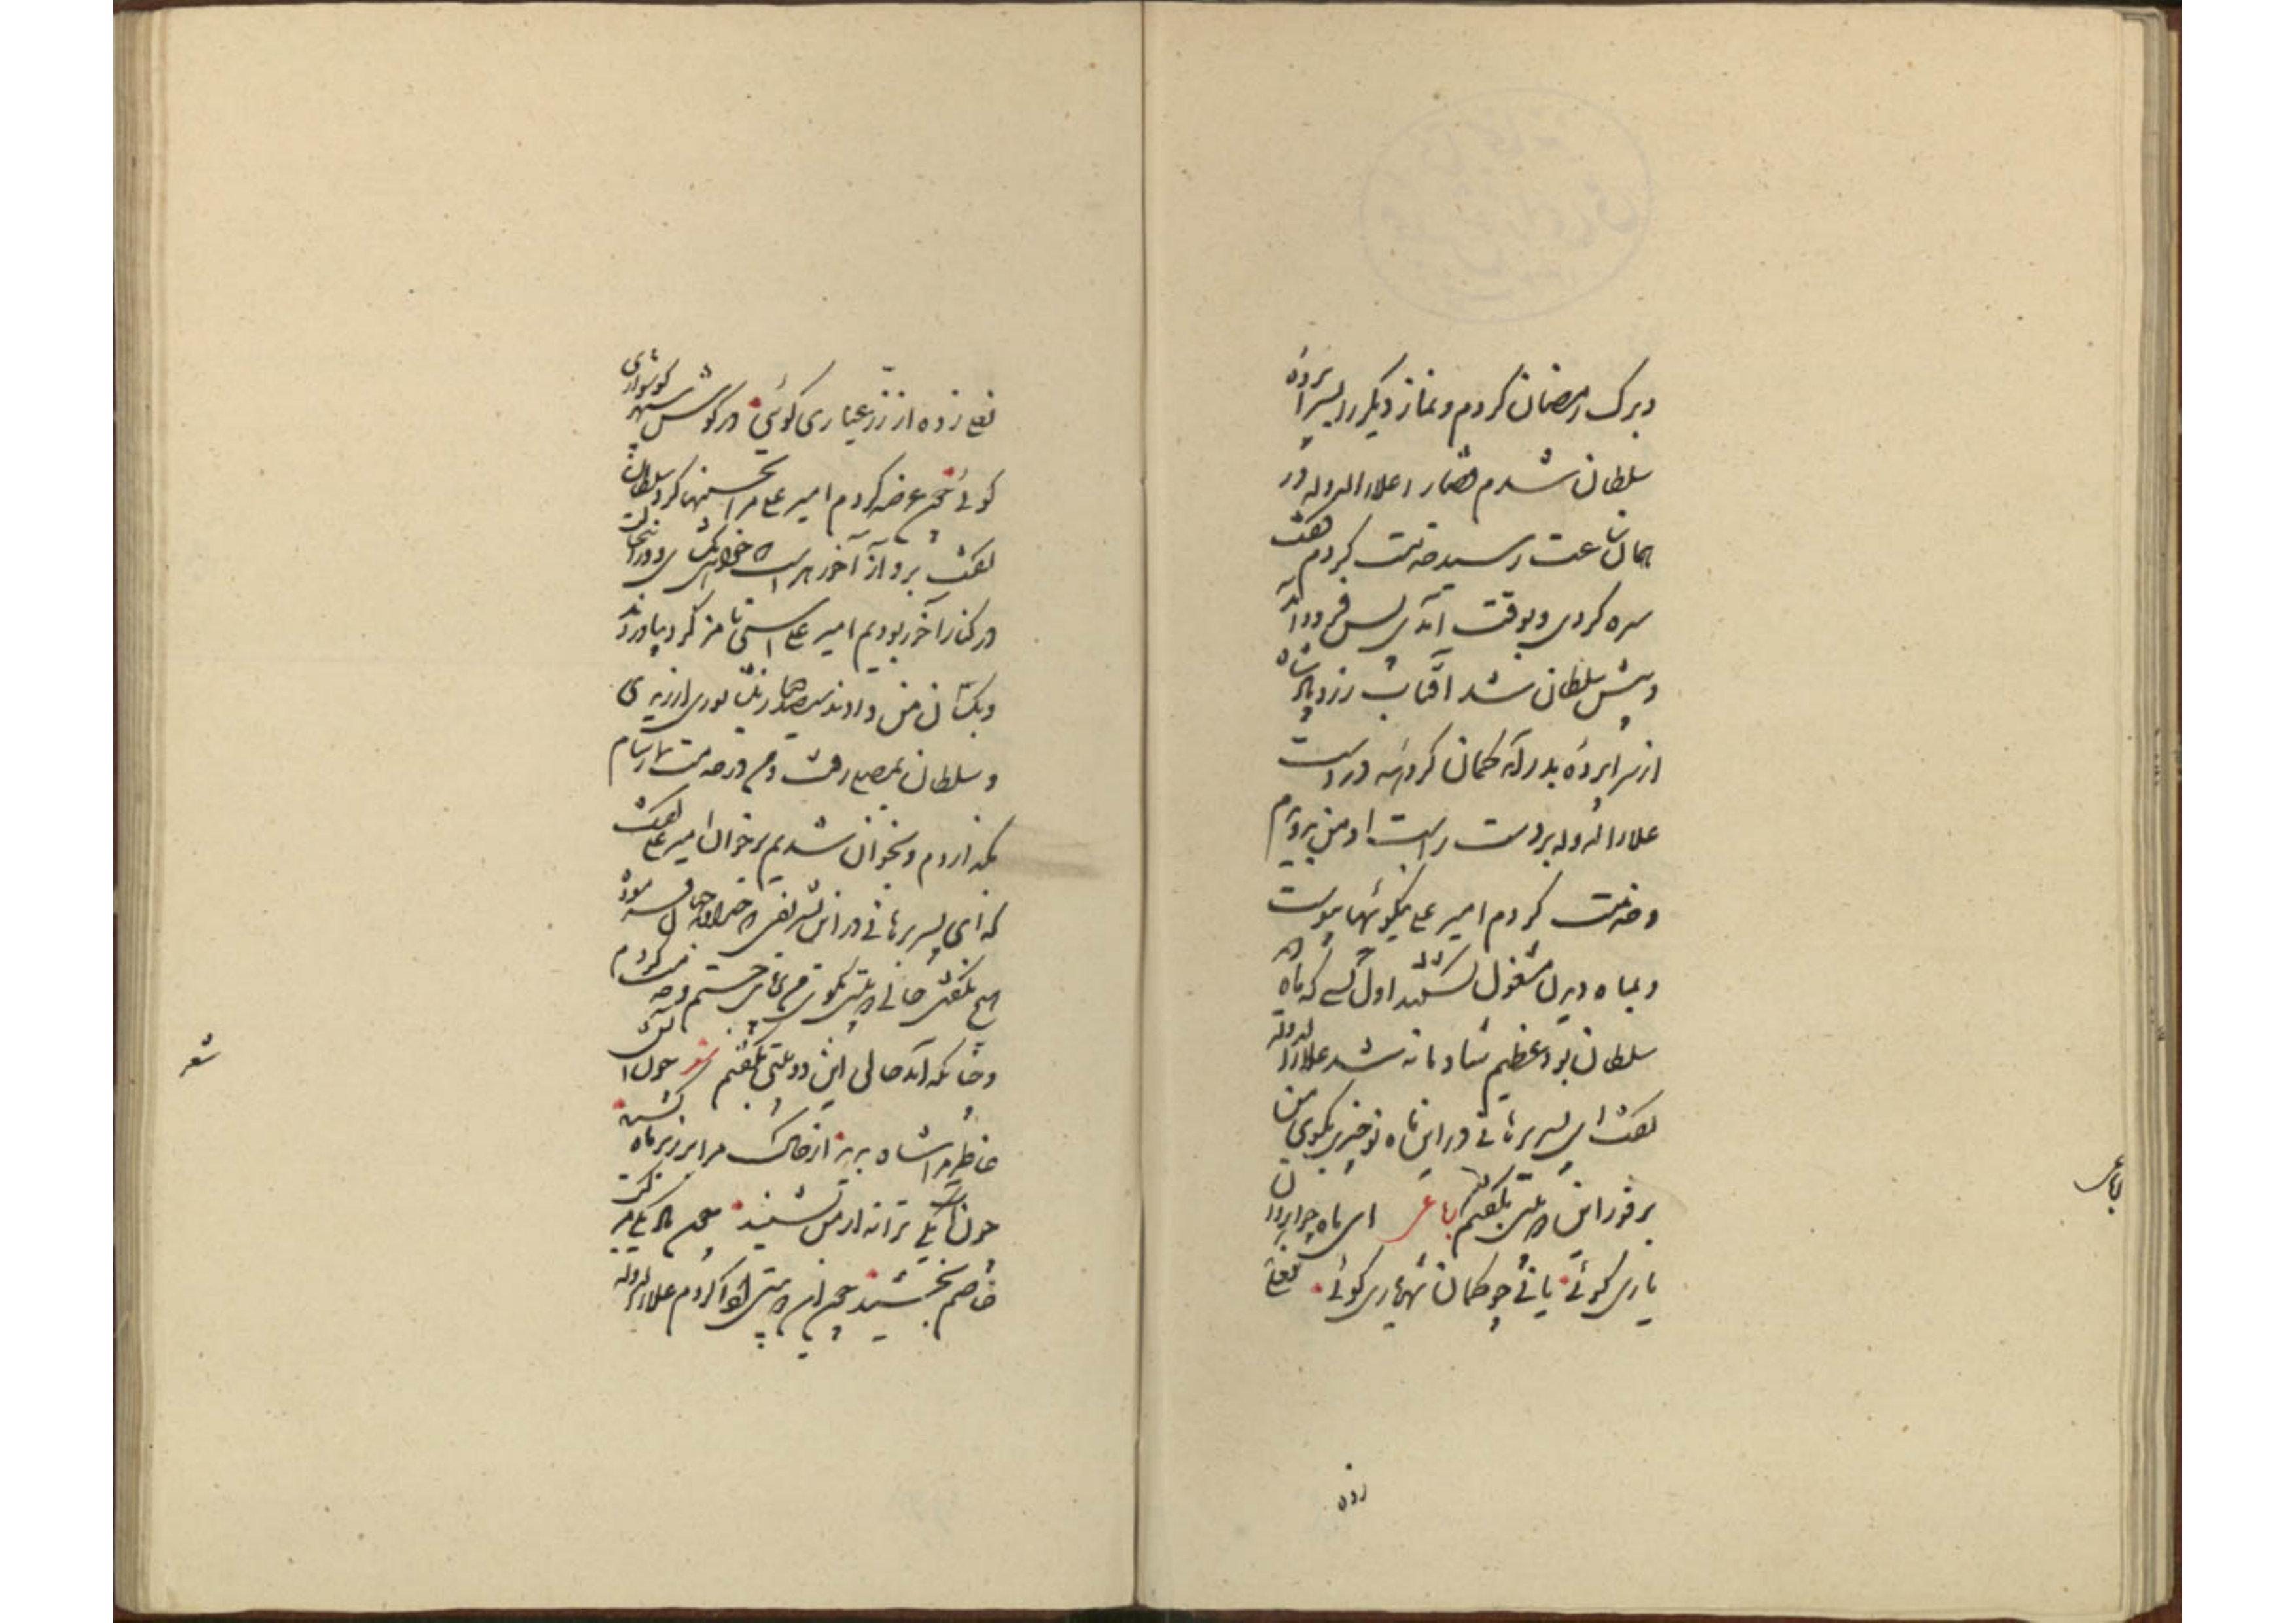 و برگ رمضان کردم و نماز دیگر را بسراپرده
سلطان شدم قضا را علاء الدوله در
همان ساعت رسید خدمت کردم گفت
سره کردی و بوقت آمدی پس فرود آمد
و پیش سلطان شد آفتاب زرد پادشاه
از سراپرده بدر آمد کمان کروهه در دست
علاء الدوله بر دست راست او من بدویدم
و خدمت کردم امیر علی نیکوئیها پیوست
و بماه دیدن مشغول گشتند اول کسی که ماه دید
سلطان بود عظیم شادمانه شد علاء الدوله
گفت ای پسر برهانی در این ماه نو چیزی بگوی من
بر فور این دو بیتی بگفتم رباعی ای ماه چو ابروان
یاری گوئی یا نی چو کمان شهریاری گوئی نعلی
زده
رباعی
نعلی زده از زر عیاری گوئی در گوش سپهر گوشواری
گوئی چون عرضه کردم امیر علی مرا تحسینها کرد سلطان
گفت برو از آخر هر اسب که خواهی بگشای و در آن حالت
در کنار آخر بودیم امیر علی اسبی نامزد کرد بیاوردند
و بکسان من دادند سیصد دینار نشابوری ارزیدی
و سلطان بمصلی رفت و من در خدمت نماز شام
بگذاردم و بخوان شدیم بر خوان امیر علی گفت
که ای پسر برهانی در این تشریفی که خداوند جهان فرمود
هیچ نگفتی حالی دو بیتی بگوی من بر پای جستم و خدمت کردم
و چنانکه آمد حالی این دو بیتی بگفتم شعر چون آتش
خاطر مرا شاه بدید از خاک مرا بر زبر ماه کشید
چون آب یکی ترانه از من بشنید چون باد یکی مرکب
خاصم بخشید چون این دو بیتی ادا کردم علاء الدوله
شعر